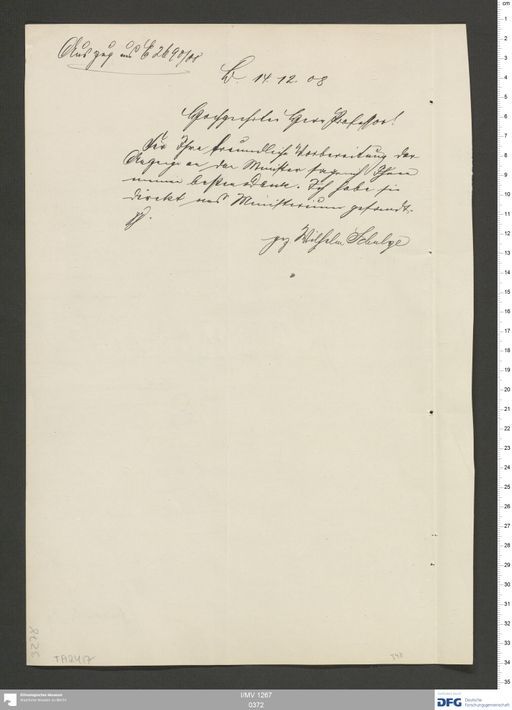 Auszug aus E 2690/08
B. 14.12.08
Hochgeehrter Herr Professor!
Für Ihre freundliche Vorbereitung der
Anzeige an den Minister sage ich Ihnen
meinen besten Dank. Ich habe sie
direkt ins Ministerium gesandt.
gez Wilhelm Schulze
8278
TA2417
I/MV 1267
0372
Ethnologisches Museum
Staatliche Museen zu Berlin
DFG Deutsche
Forschungsgemeinschaft